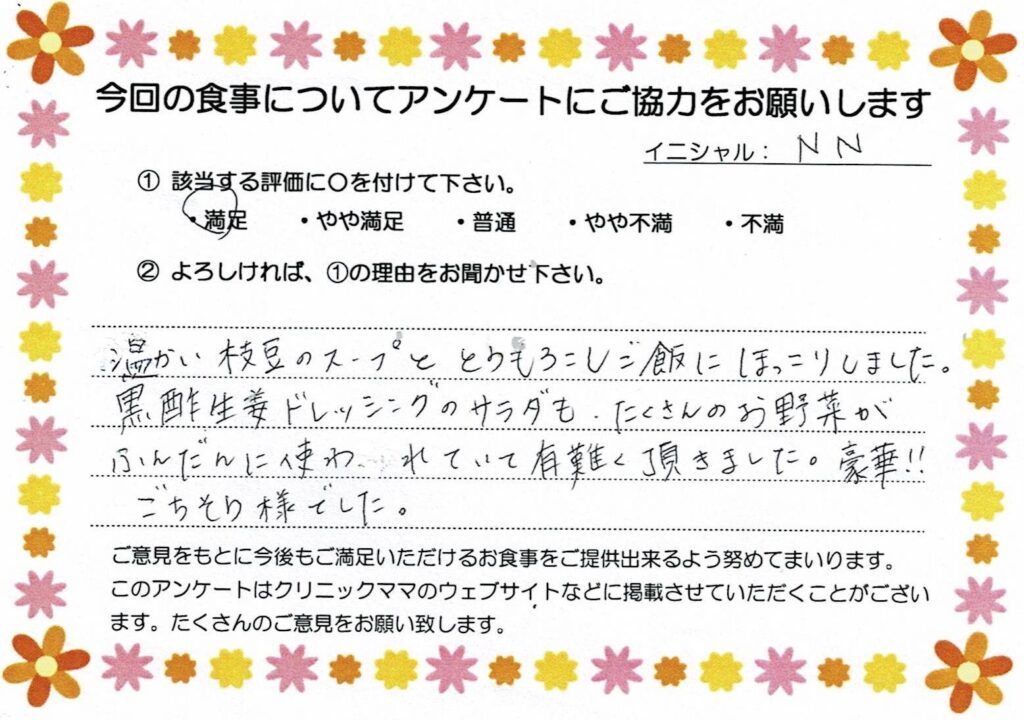 今回の食事についてアンケートにご協力をお願いします
イニシャル： N N
① 該当する評価に〇を付けて下さい。
・満足 ・やや満足 ・普通 ・やや不満 ・不満
② よろしければ、①の理由をお聞かせ下さい。
温かい枝豆のスープととうもろこしご飯にほっこりしました。
黒酢生姜ドレッシングのサラダも、たくさんのお野菜が
ふんだんに使われていて有難く頂きました。豪華!!
ごちそう様でした。
ご意見をもとに今後もご満足いただけるお食事をご提供出来るよう努めてまいります。
このアンケートはクリニックママのウェブサイトなどに掲載させていただくことがござい
ます。たくさんのご意見をお願い致します。